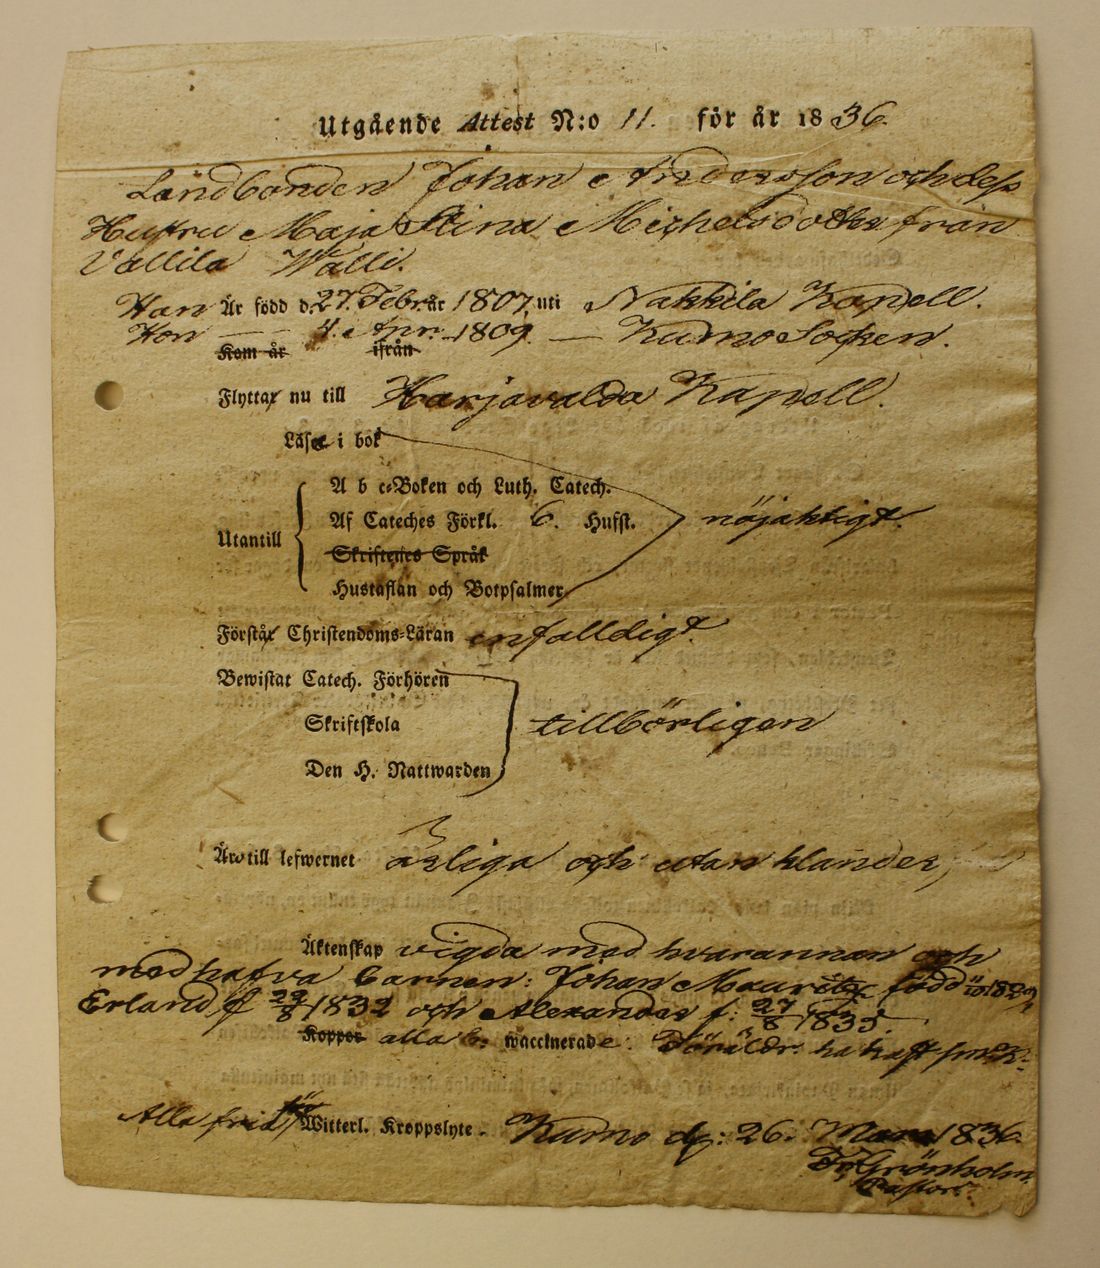 Utgående Attest N:o 11. för år 1836.
Landbonden Johan Andersson och dess
Hustru Maja Stina Michelsdotter från
Vallila Walli.
Han Är född d. 27. Febr. år 1807. uti Nakkila Kapell.
Hon — — 4. Apr. — 1809. — Kumo Socken.
Kom år ifrån
Flytta nu till Harjavalda Kapell.
Läsa i bok
A b c-Boken och Luth. Catech.
Utantill Af Cateches Förkl. 6. Hufst. nöjaktigt.
Skriftenes Språk
Hustaflan och Botpsalmer
Förstå Christendoms-Läran enfalldigt.
Bewistat Catech. Förhören
Skriftskola tillbörligen
Den H. Nattwarden
Äro till lefwernet ärliga och utan klander,
Äktenskap vigda med hvarannan och
med hafva barnen: Johan Mauritz född 1829
Erland f 29/8 1832 och Alexander f: 27/8 1835.
Koppor alla waccinerade. Föräldr. ha haft
Alla fria för Witterl. Kroppslyte. Kumo d: 26. Mars 1836.
Fr Grönholm
Pastor